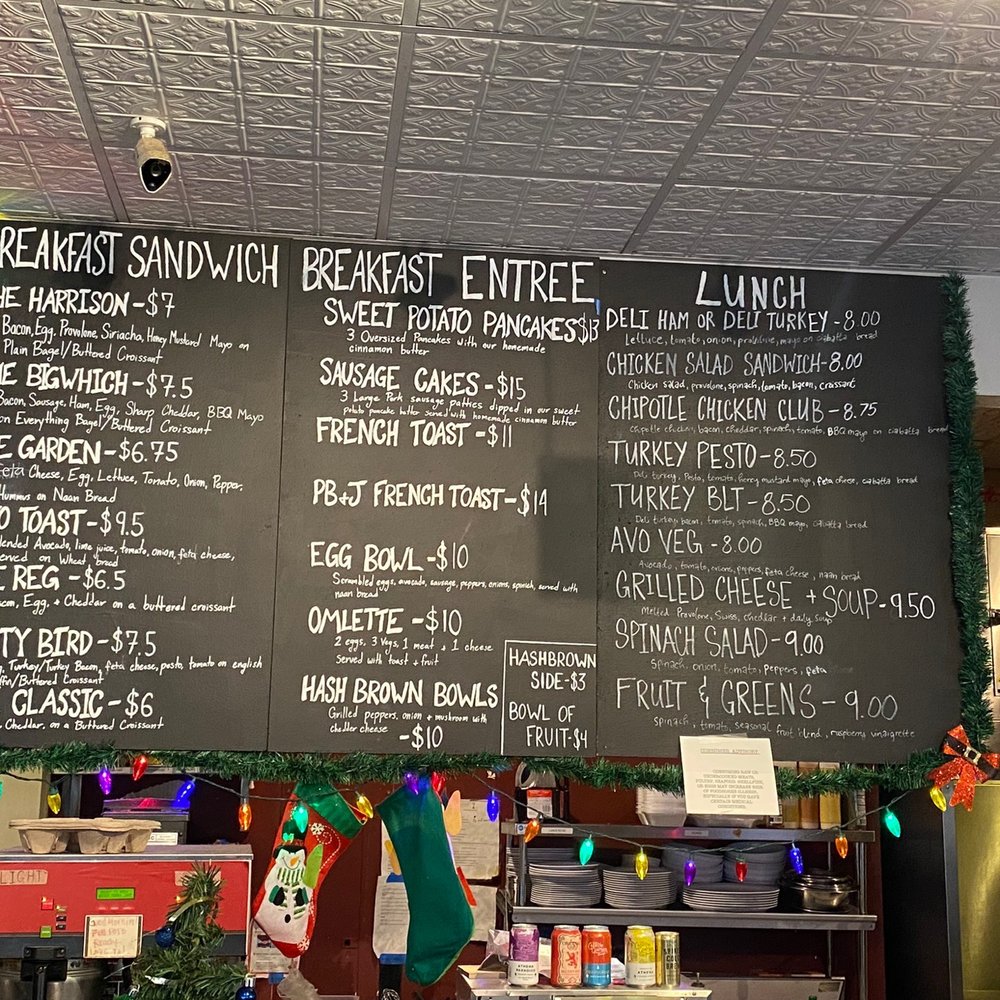 REAKFAST SANDWICH
HE HARRISON - $7
Bacon, Egg, Provolone, Siriacha, Honey Mustard Mayo on
Plain Bagel/Buttered Croissant
HE BIGWHICH - $7.5
Bacon, Sausage, Ham, Egg, Sharp Cheddar, BBQ Mayo
on Everything Bagel/Buttered Croissant
E GARDEN - $6.75
Feta Cheese, Egg, Lettuce, Tomato, Onion, Pepper,
Hummus on Naan Bread
O TOAST - $9.5
lended Avocado, lime juice, tomato, onion, feta cheese,
erved on Wheat bread
E REG - $6.5
con, Egg, + Cheddar on a buttered croissant
TY BIRD - $7.5
, Turkey/Turkey Bacon, feta cheese, pesto, tomato on english
ffin/Buttered Croissant
CLASSIC - $6
, Cheddar, on a Buttered Croissant
BREAKFAST ENTREE
SWEET POTATO PANCAKES $13
3 Oversized Pancakes with our homemade
cinnamon butter
SAUSAGE CAKES - $15
3 Large Pork sausage patties dipped in our sweet
potato pancake batter served with homemade cinnamon butter
FRENCH TOAST - $11
PB+J FRENCH TOAST - $14
EGG BOWL - $10
Scrambled eggs, avocado, sausage, peppers, onions, spinach, served with
naan bread
OMLETTE - $10
2 eggs, 3 Vegs, 1 meat, + 1 cheese
Served with toast + fruit
HASH BROWN BOWLS
Grilled peppers, onion + mushroom with
chedder cheese
- $10
HASHBROWN
SIDE - $3
BOWL OF
FRUIT - $4
LUNCH
DELI HAM OR DELI TURKEY - 8.00
Lettuce, tomato, onion, provolone, mayo on ciabatta bread
CHICKEN SALAD SANDWICH - 8.00
Chicken salad, provolone, spinach, tomato, bacon, croissant
CHIPOTLE CHICKEN CLUB - 8.75
Chipotle chicken, bacon, cheddar, spinach, tomato, BBQ mayo on ciabatta bread
TURKEY PESTO - 8.50
Deli turkey, Pesto, tomato, honey mustard mayo, feta cheese, ciabatta bread
TURKEY BLT - 8.50
Deli turkey, bacon, tomato, spinach, BBQ mayo, ciabatta bread
AVO VEG - 8.00
Avocado, tomato, onions, peppers, feta cheese, naan bread
GRILLED CHEESE + SOUP - 9.50
Melted Provolone, Swiss, cheddar + daily soup
SPINACH SALAD - 9.00
Spinach, onion, tomato, peppers, feta
FRUIT & GREENS - 9.00
spinach, tomato, seasonal fruit blend, raspberry vinaigrette
CONSUMER ADVISORY
CONSUMING RAW OR
UNDERCOOKED MEATS,
POULTRY, SEAFOOD, SHELLFISH,
OR EGGS MAY INCREASE RISK
OF FOODBORNE ILLNESS,
ESPECIALLY IF YOU HAVE
CERTAIN MEDICAL
CONDITIONS.
LIGHT